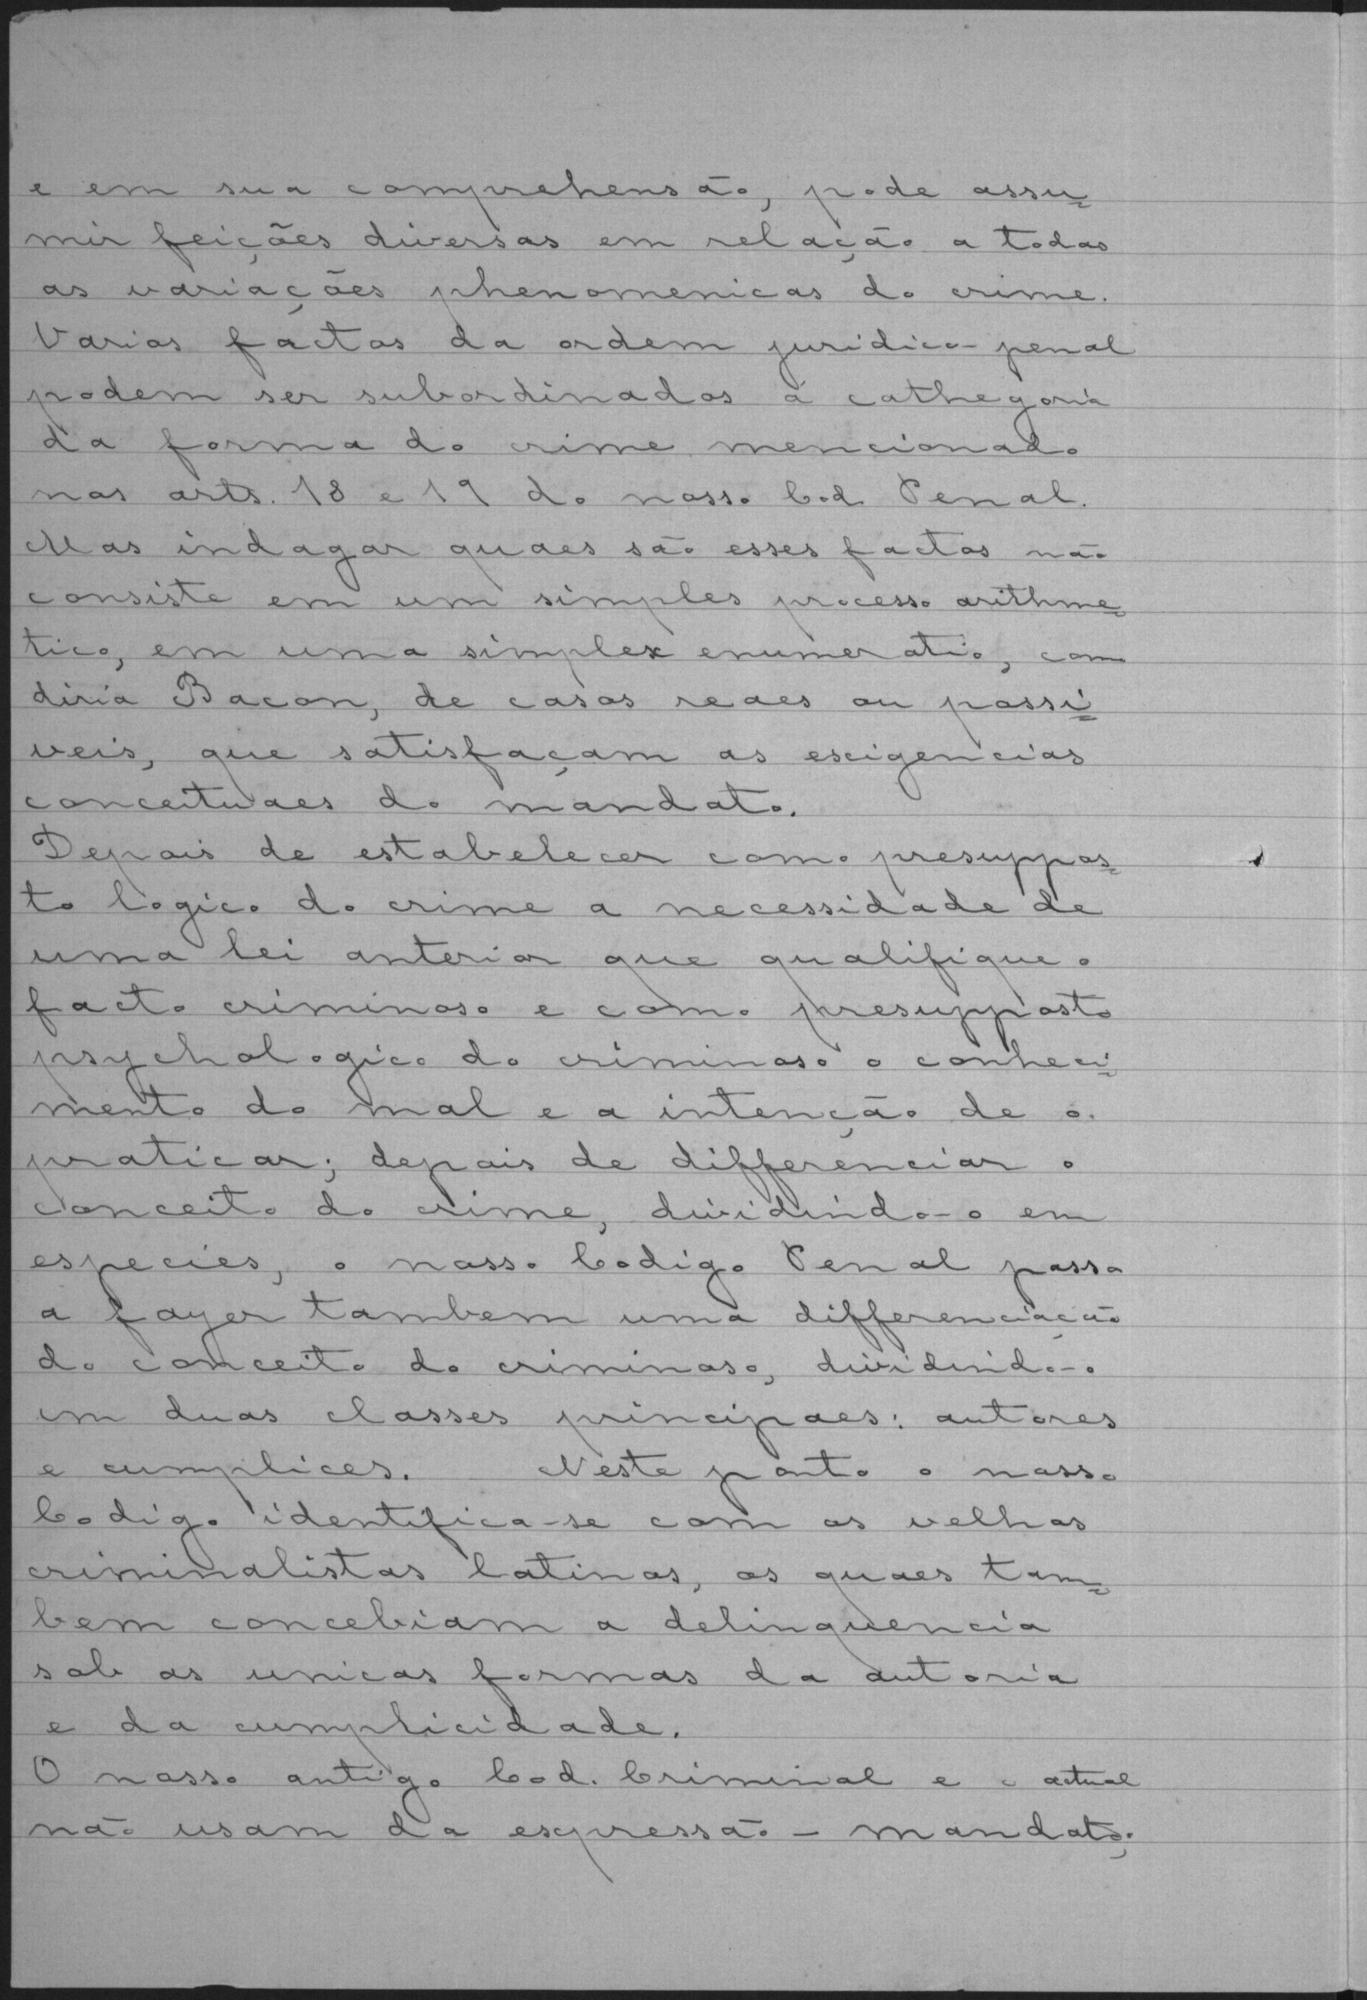 e em sua comprehensão, pode assu=
mir feições diversas em relação a todas
as variações phenomenicas do crime.
Varios factos da ordem juridico-penal
podem ser subordinados á cathegoria
da forma do crime mencionado
nos arts. 18 e 19 do nosso Cod. Penal.
Mas indagar quaes são esses factos não
consiste em um simples processo arithme=
tico, em uma simplex enumeratio, como
diria Bacon, de casos reaes ou possi=
veis, que satisfaçam as exigencias
conceituaes do mandato.
Depois de estabelecer como presuppos=
to logico do crime a necessidade de
uma lei anterior que qualifique o
facto criminoso e como presupposto
psychologico do criminoso o conheci=
mento do mal e a intenção de o
praticar; depois de differenciar o
conceito do crime, dividindo-o em
especies, o nosso Codigo Penal passa
a fazer tambem uma differenciação
do conceito do criminoso, dividindo-o
em duas classes principaes: autores
e cumplices. Neste ponto o nosso
Codigo identifica-se com os velhos
criminalistas latinos, os quaes tam=
bem concebiam a delinquencia
sob as unicas formas da autoria
e da cumplicidade.
O nosso antigo Cod. Criminal e o actual
não usam da expressão - mandato;